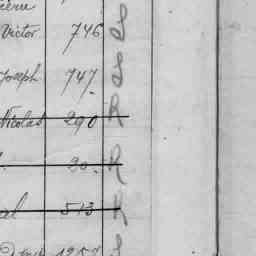 Victor 746 S
Joseph 747. S
Nicolas 290 R
20. R
al 513 R